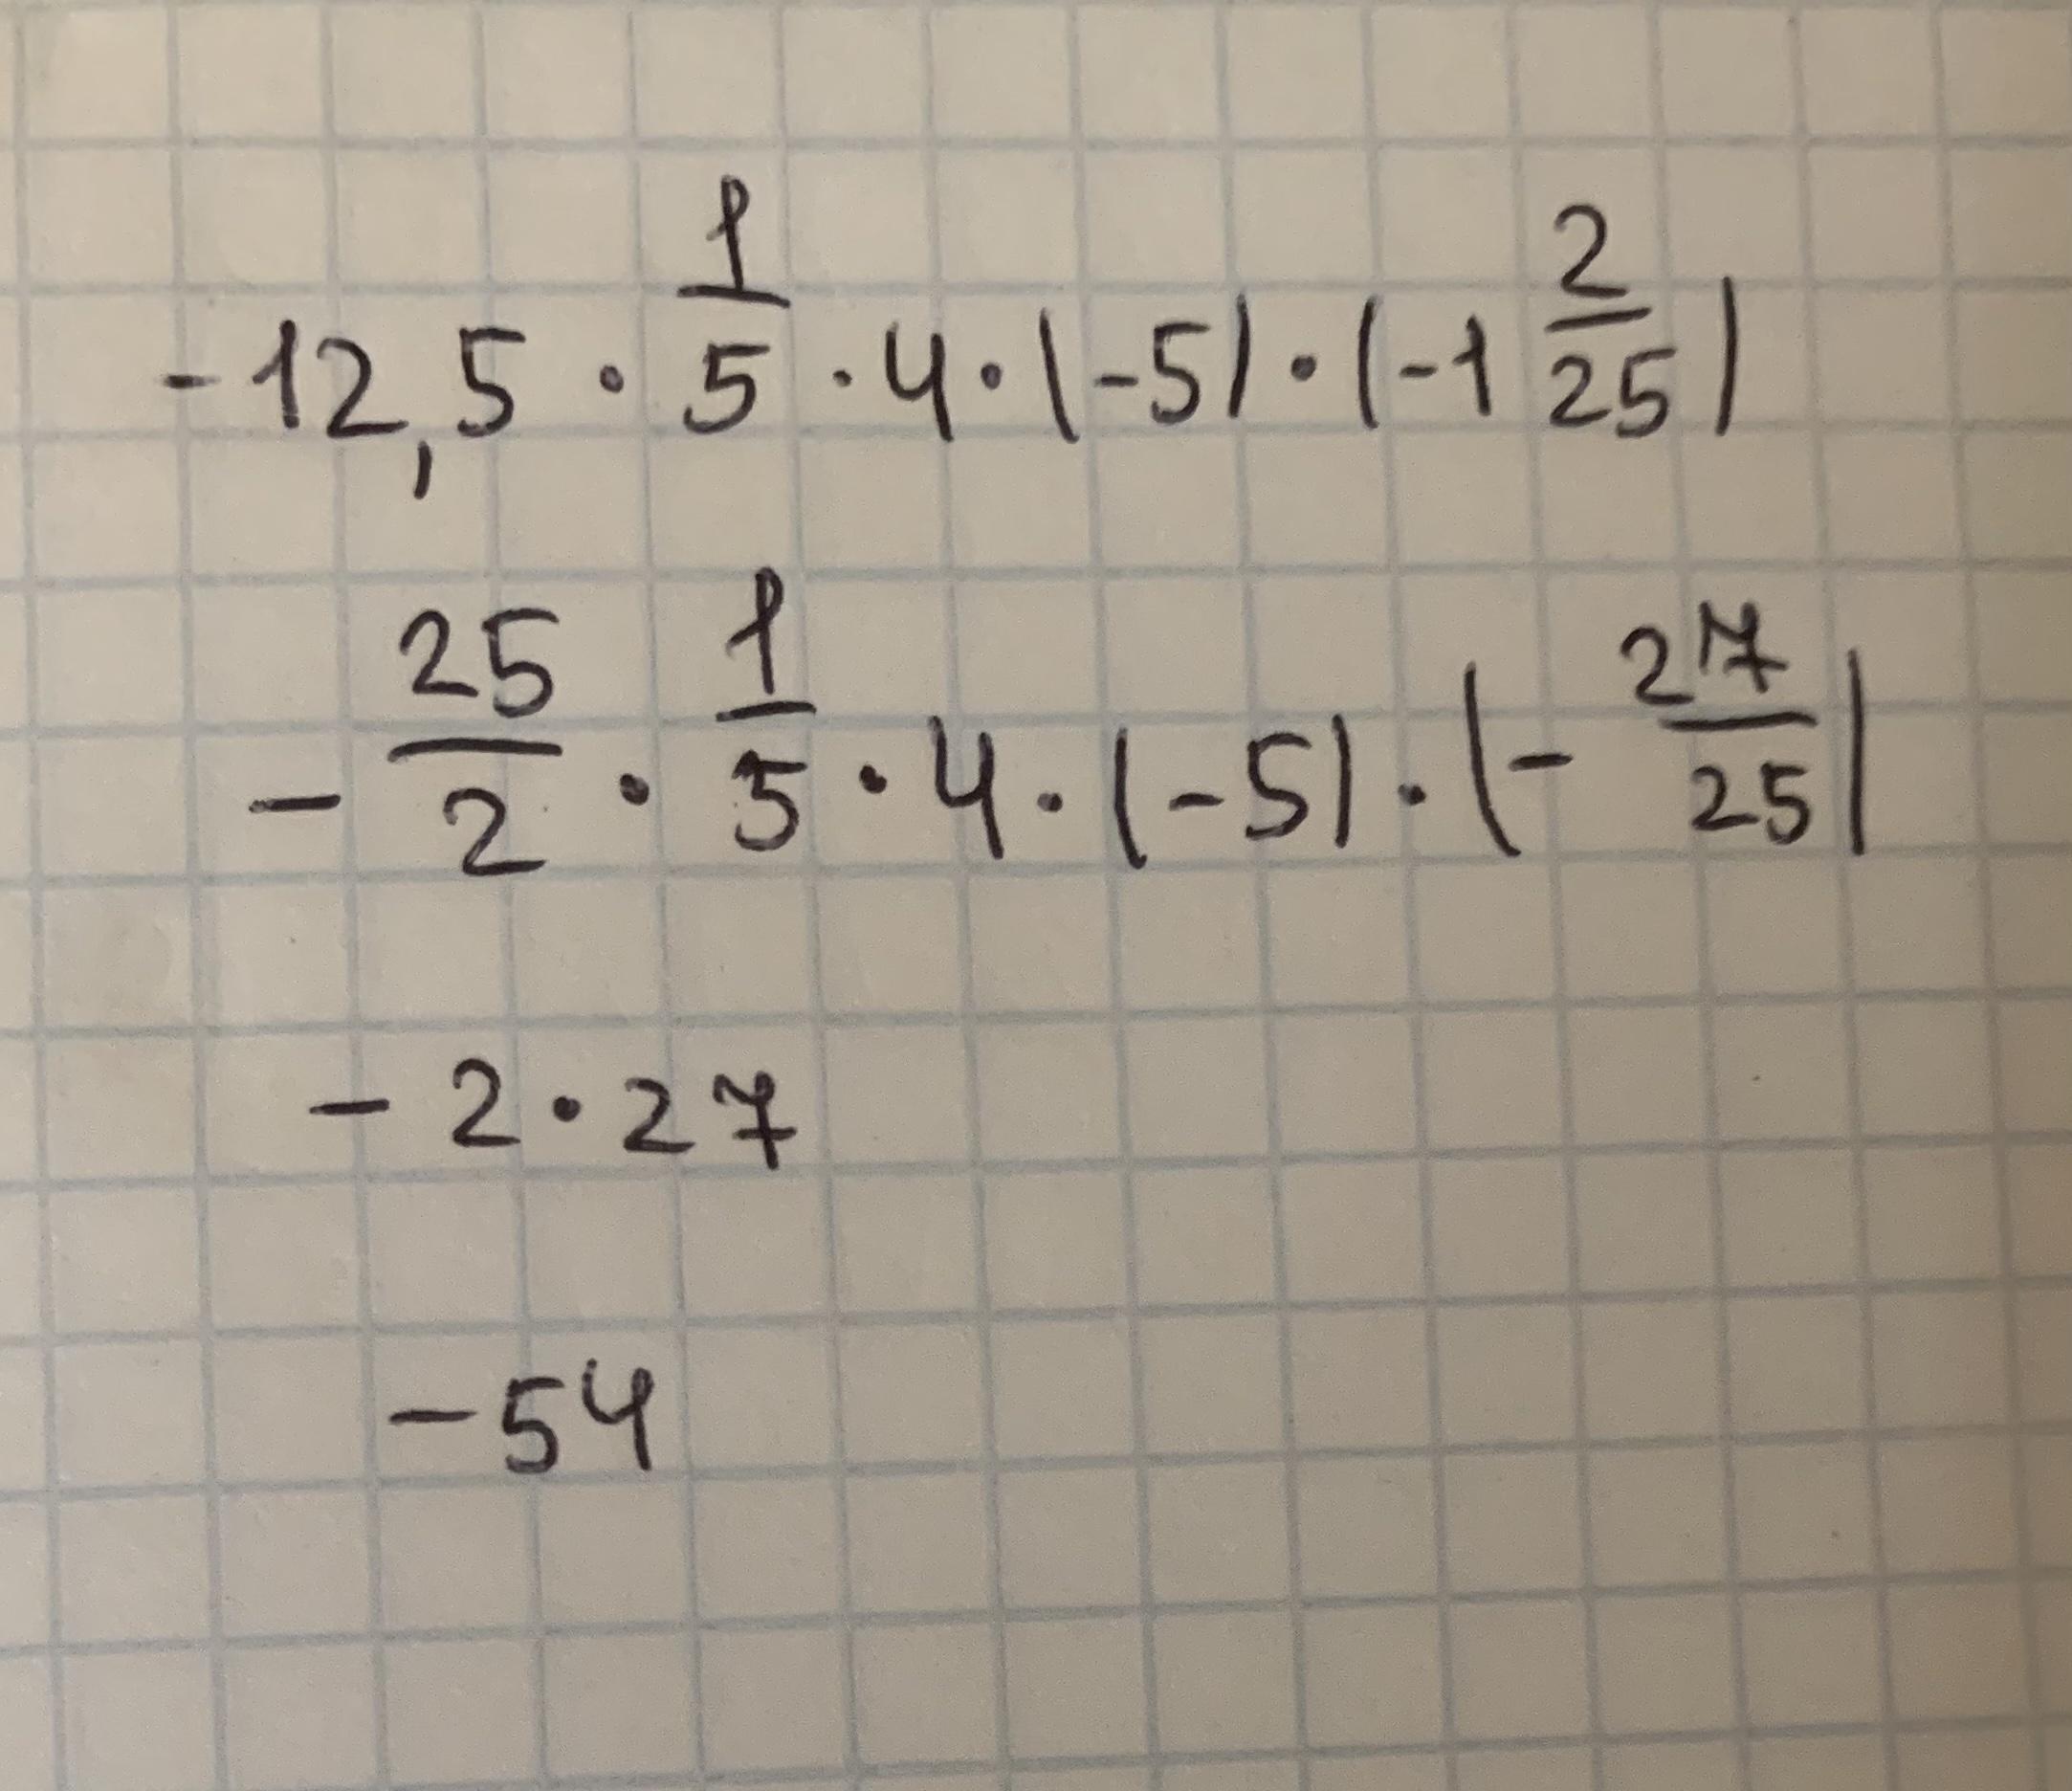 -12,5 · 1/5 · 4 · |-5| · |-1 2/25|
- 25/2 · 1/5 · 4 · |-5| · |- 27/25|
- 2 · 27
- 54